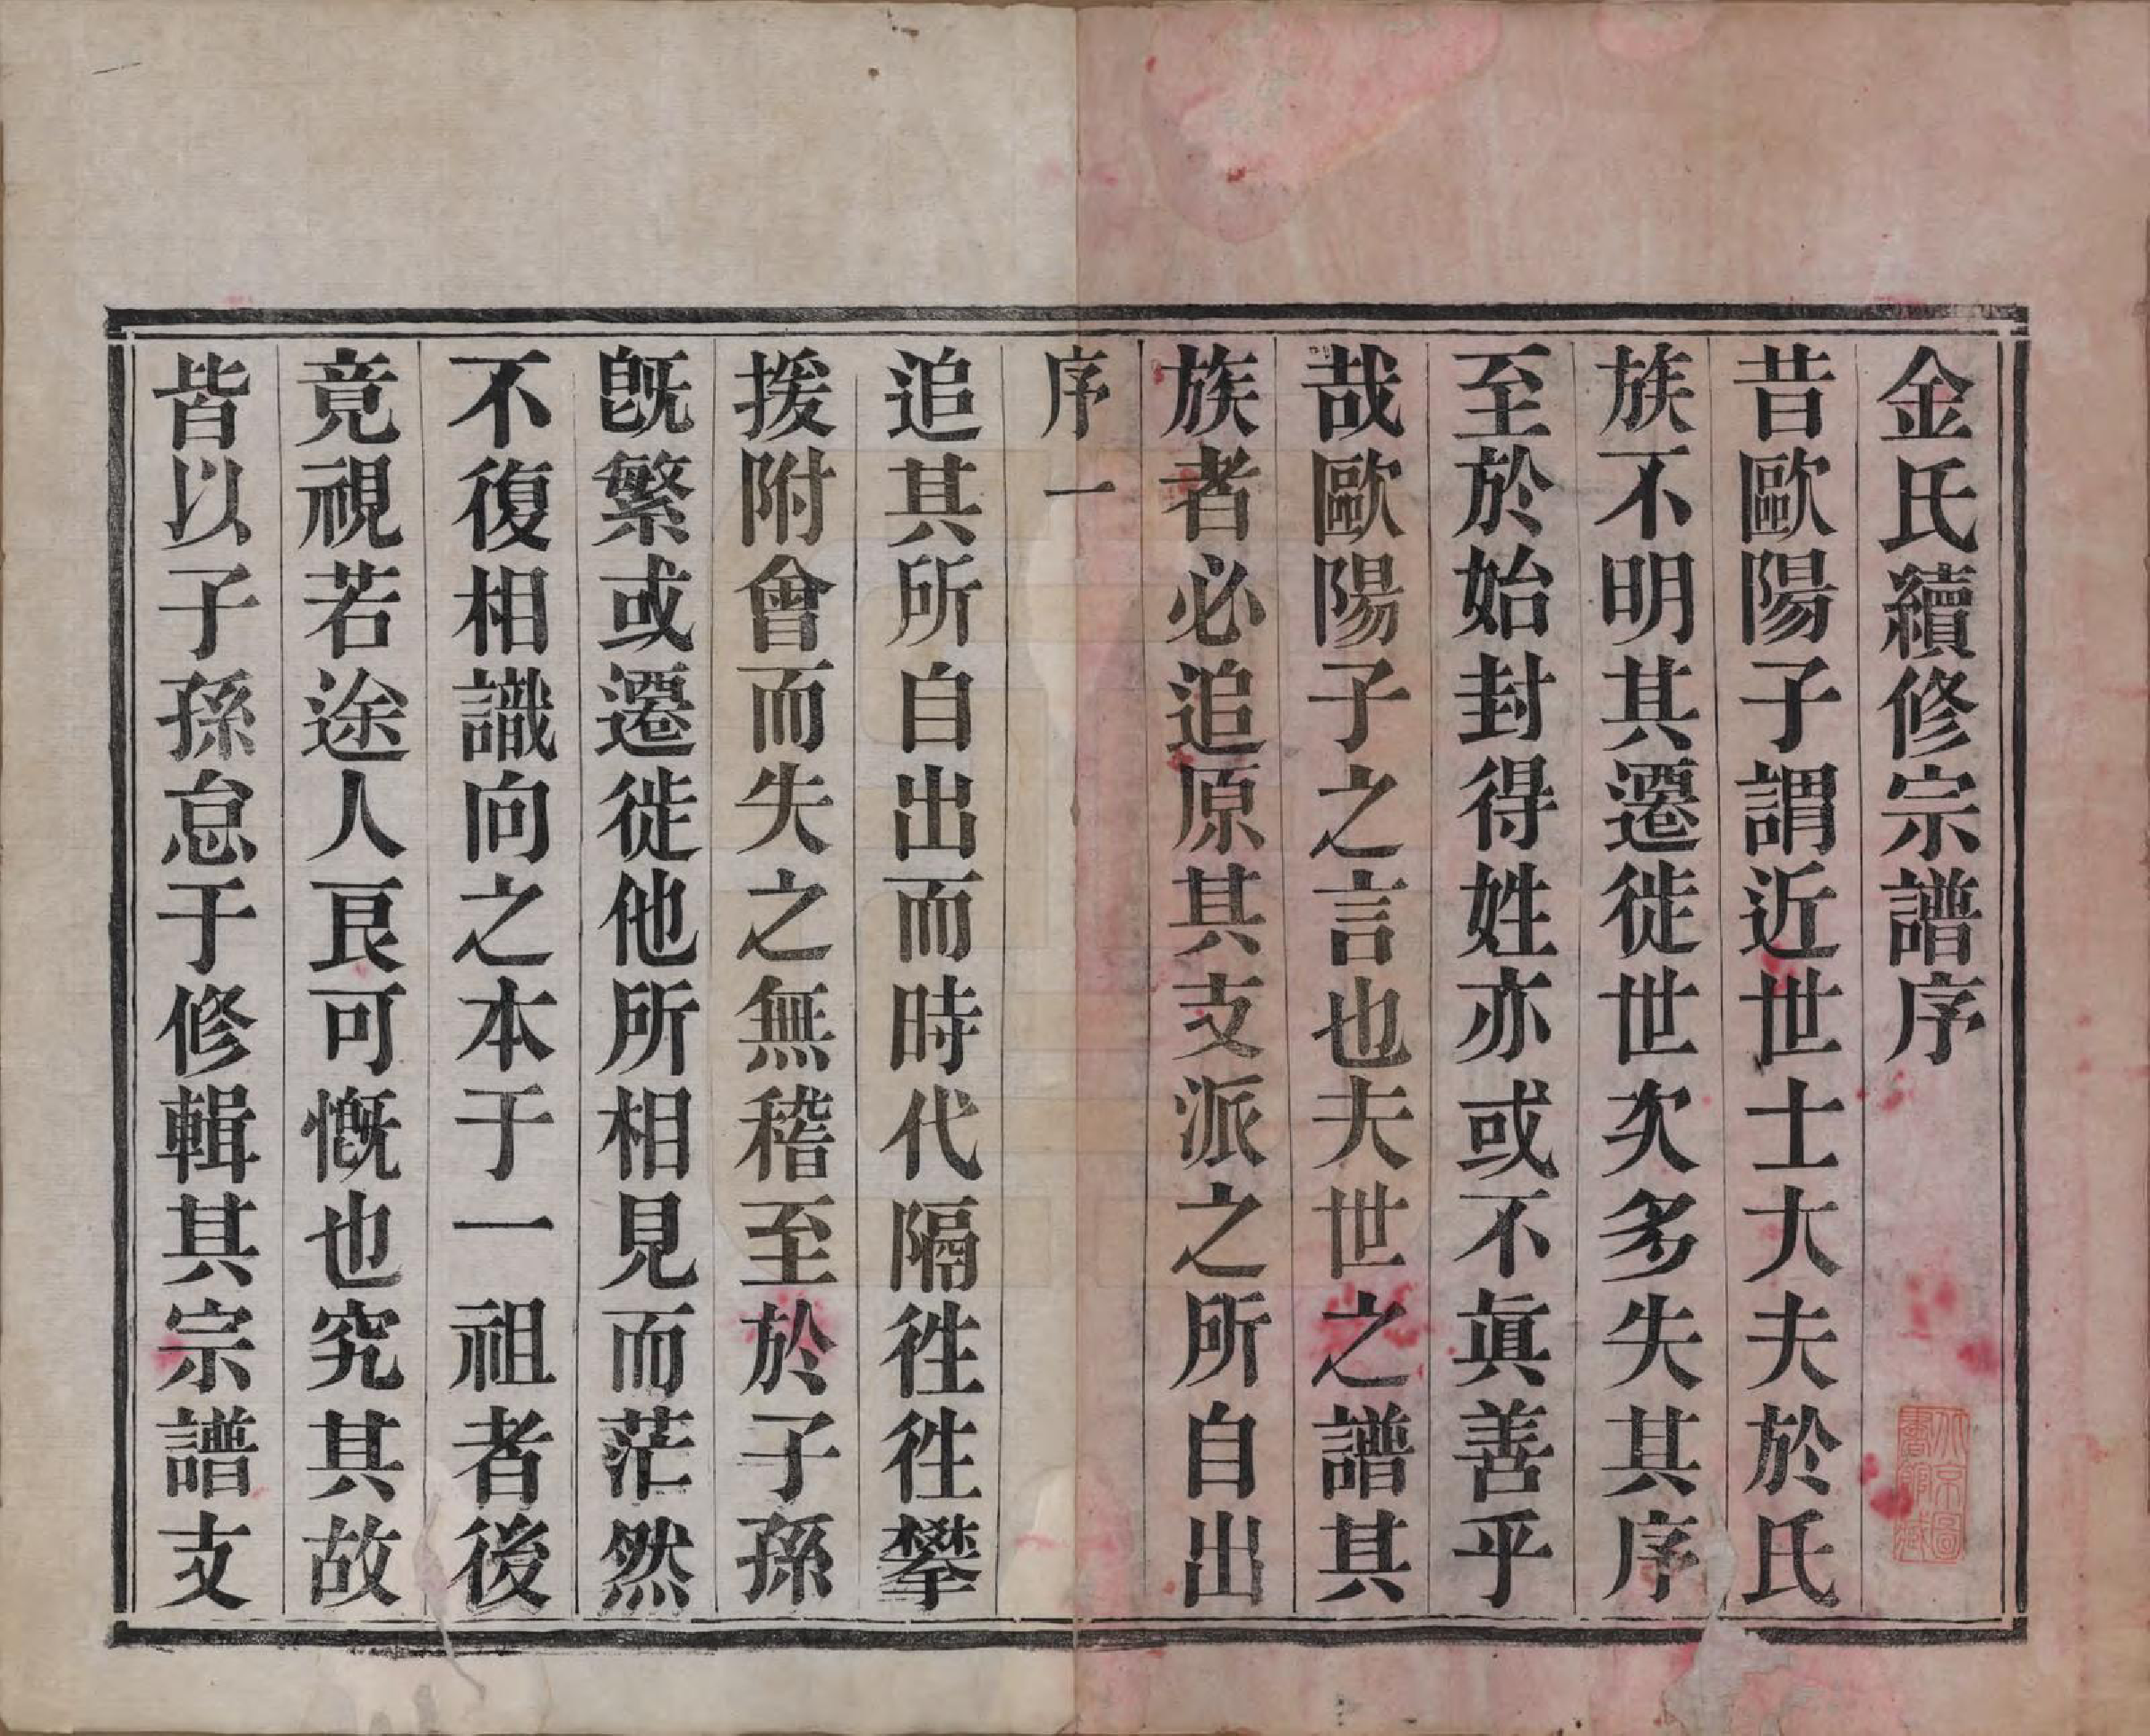 金氏續修宗譜序
昔歐陽子謂近世士大夫於氏
族不明其遷徙世次多失其序
至於始封得姓亦或不眞善乎
哉歐陽子之言也夫世之譜其
族者必追原其支派之所自出
序一
追其所自出而時代隔徃徃攀
援附會而失之無稽至於子孫
旣繁或遷徙他所相見而茫然
不復相識向之本于一祖者後
竟視若途人良可慨也究其故
皆以子孫怠于修輯其宗譜支
北京圖
書館藏